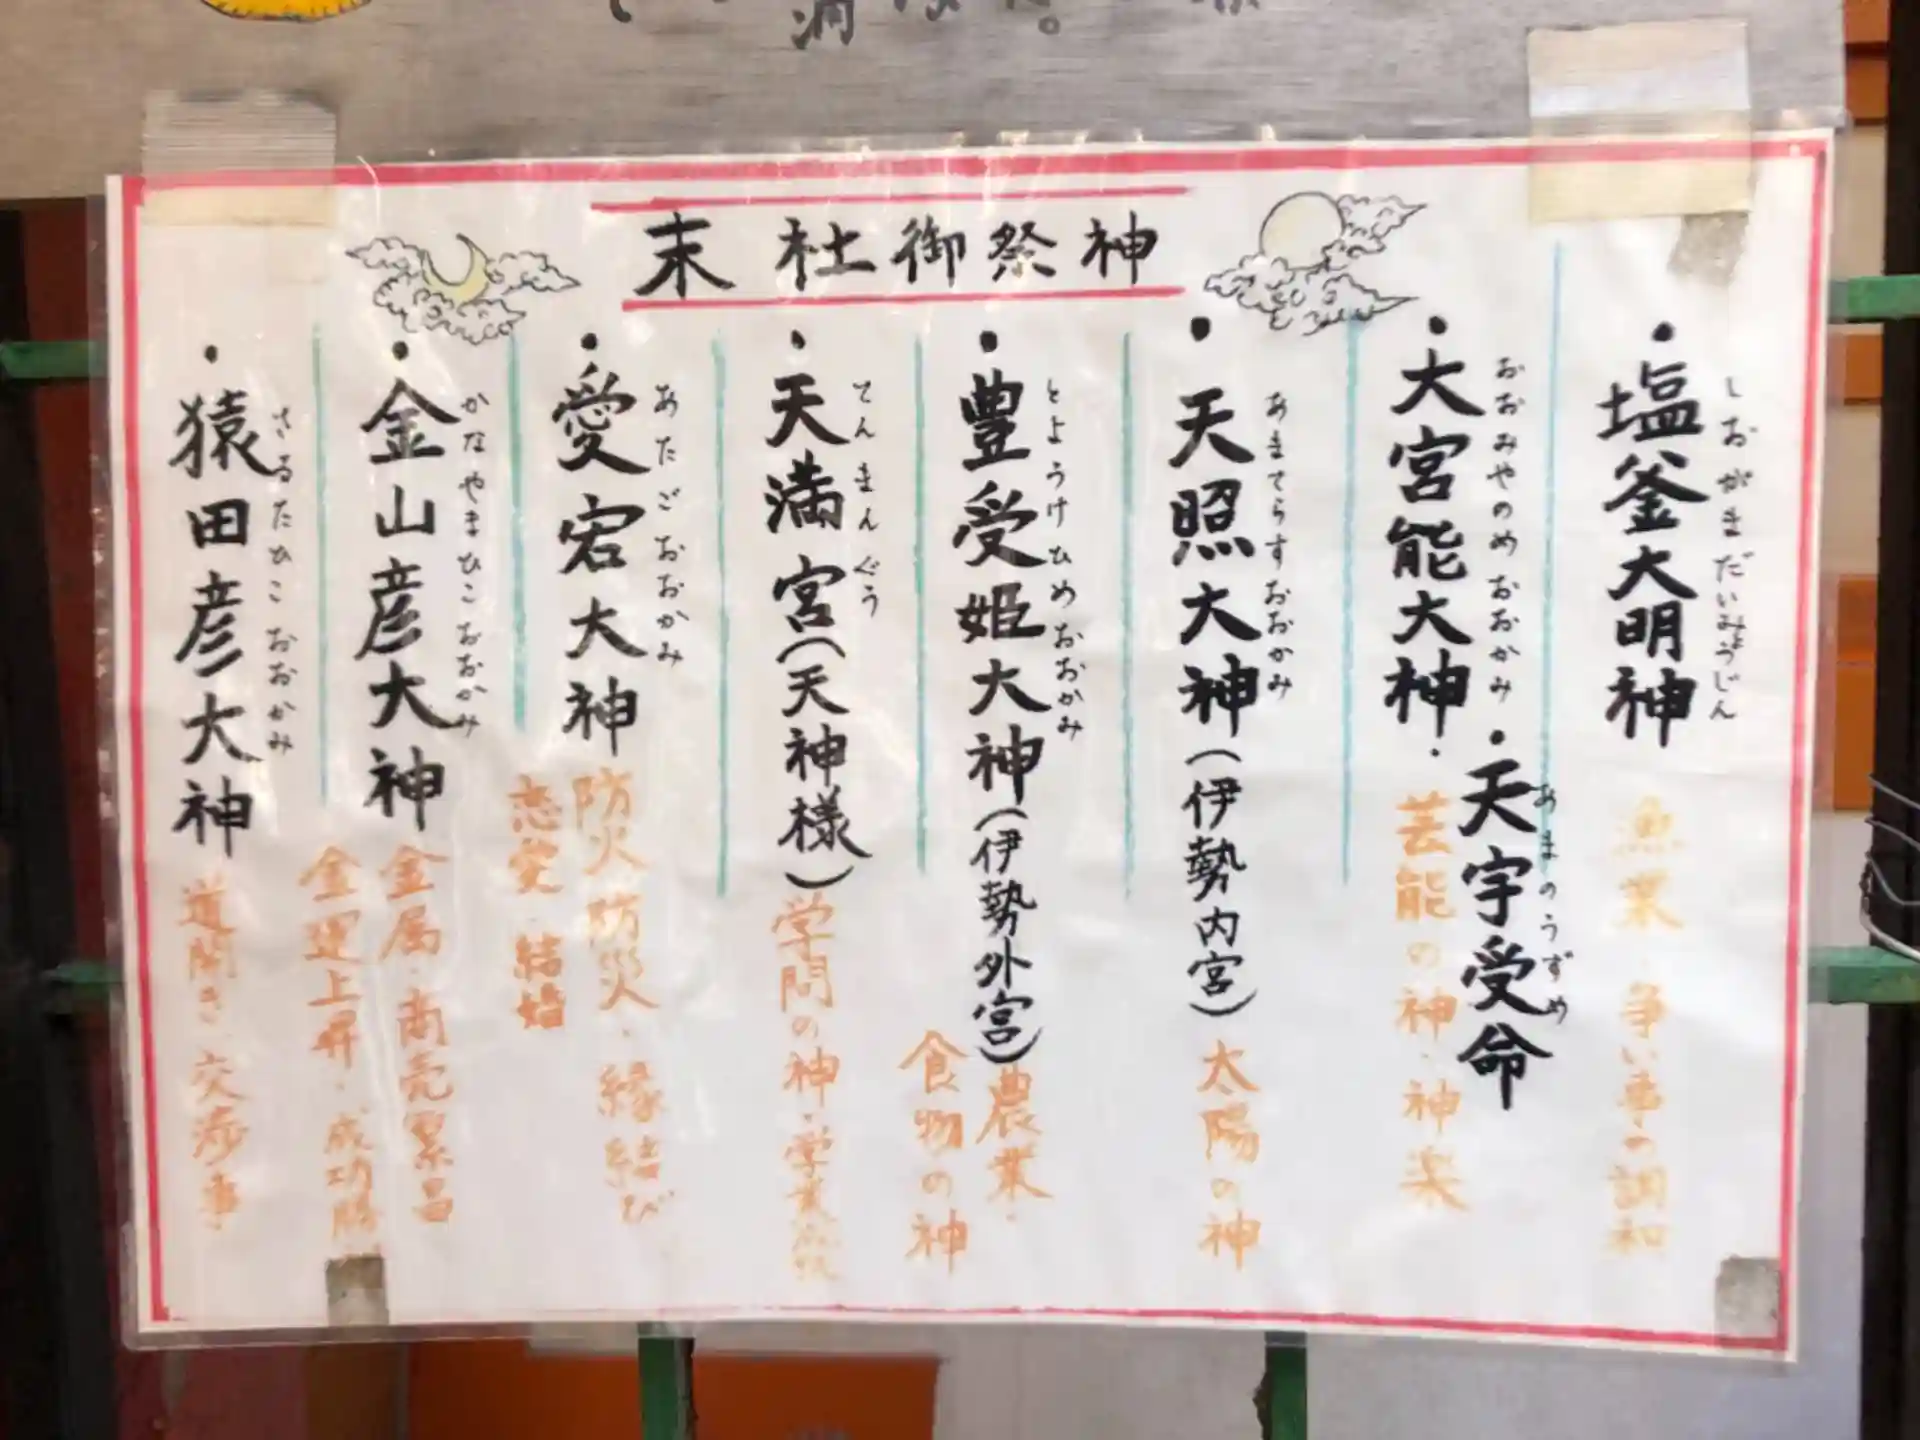 末社御祭神
・塩釜大明神
しおがまだいみょうじん
魚業・争い事の調和
・大宮能大神・
おおみやのめおおかみ
・天宇受命
あまのうずめ
芸能の神・神楽
・天照大神(伊勢内宮)
あまてらすおおかみ
太陽の神
・豊受姫大神(伊勢外宮)
とようけひめおおかみ
農業・
食物の神
・天満宮(天神様)
てんまんぐう
学問の神・学業
・愛宕大神
あたごおおかみ
防火防災・縁結び
恋愛・結婚
・金山彦大神
かなやまひこおおかみ
金属・商売繁昌
金運上昇・成功勝
・猿田彦大神
さるたひこおおかみ
道開き、交渉事・